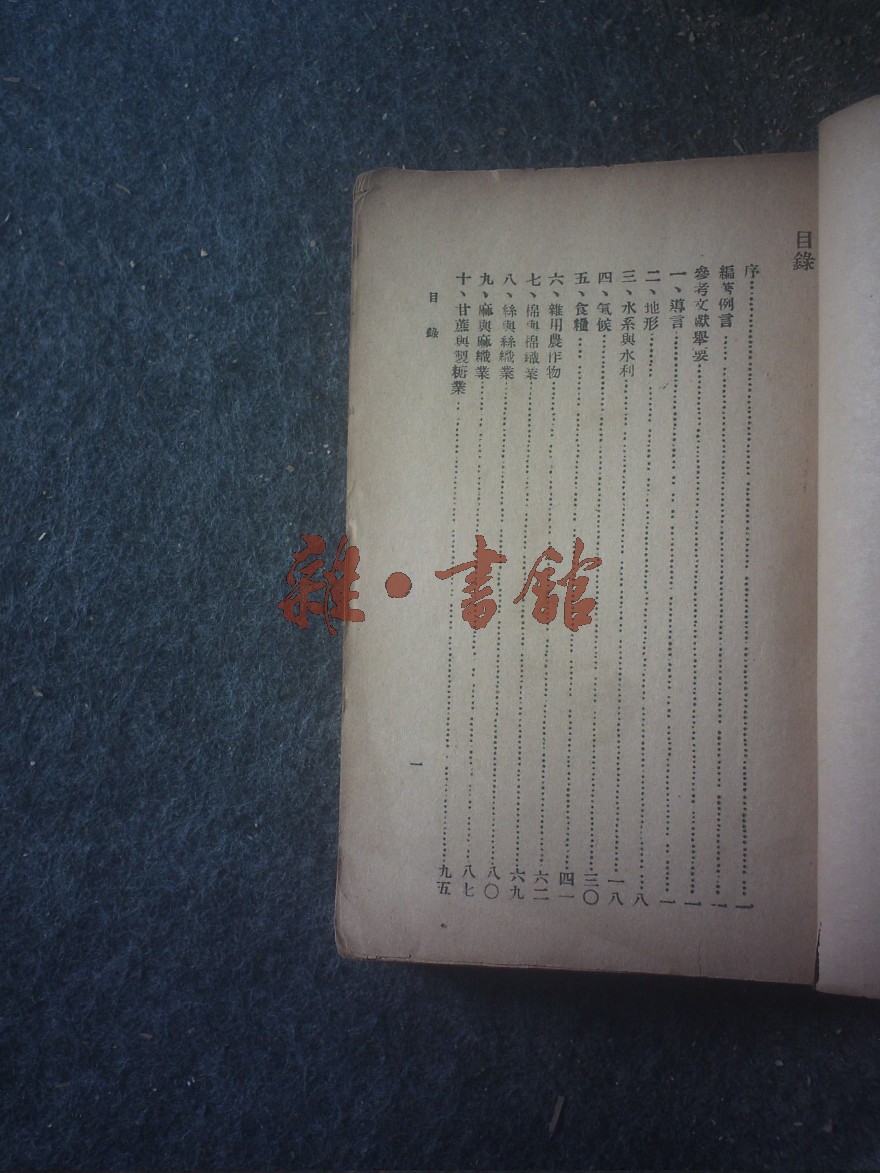 目錄
序……一
編著例言……一
參考文獻舉要……一
一、導言……一
二、地形……八
三、水系與水利……一八
四、氣候……三〇
五、食糧……四一
六、雜用農作物……六二
七、棉與棉織業……六九
八、絲與絲織業……八〇
九、麻與麻織業……八七
十、甘蔗與製糖業……九五
目錄
一
雜·書館